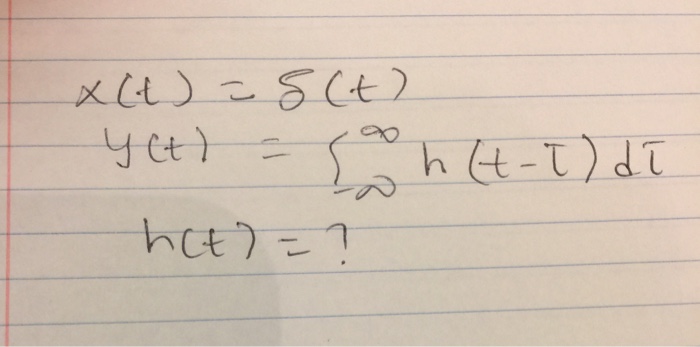 x(t) = δ(t)
y(t) = ∫_{-∞}^{∞} h(t-τ) dτ
h(t) = ?